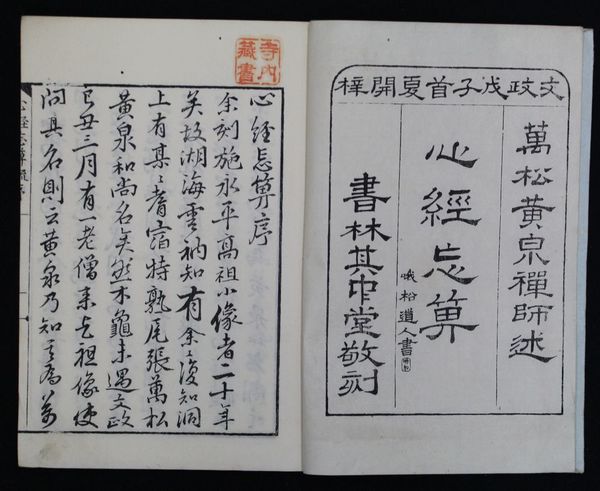 文政戊子首夏開梓
萬松黃泉禪師述
心經忘算
道人書
書林其中堂敬刻
寺内
藏書
心經忘算序
余刻施永平高祖小像者二十年
矣故湖海雲衲知有余復知洞
上有某〻耆宿特熟尾張萬松
黃泉和尚名矣然木龜未遇文政
己丑三月有一老僧来乞祖像使
問其名則云黃泉乃知之為萬